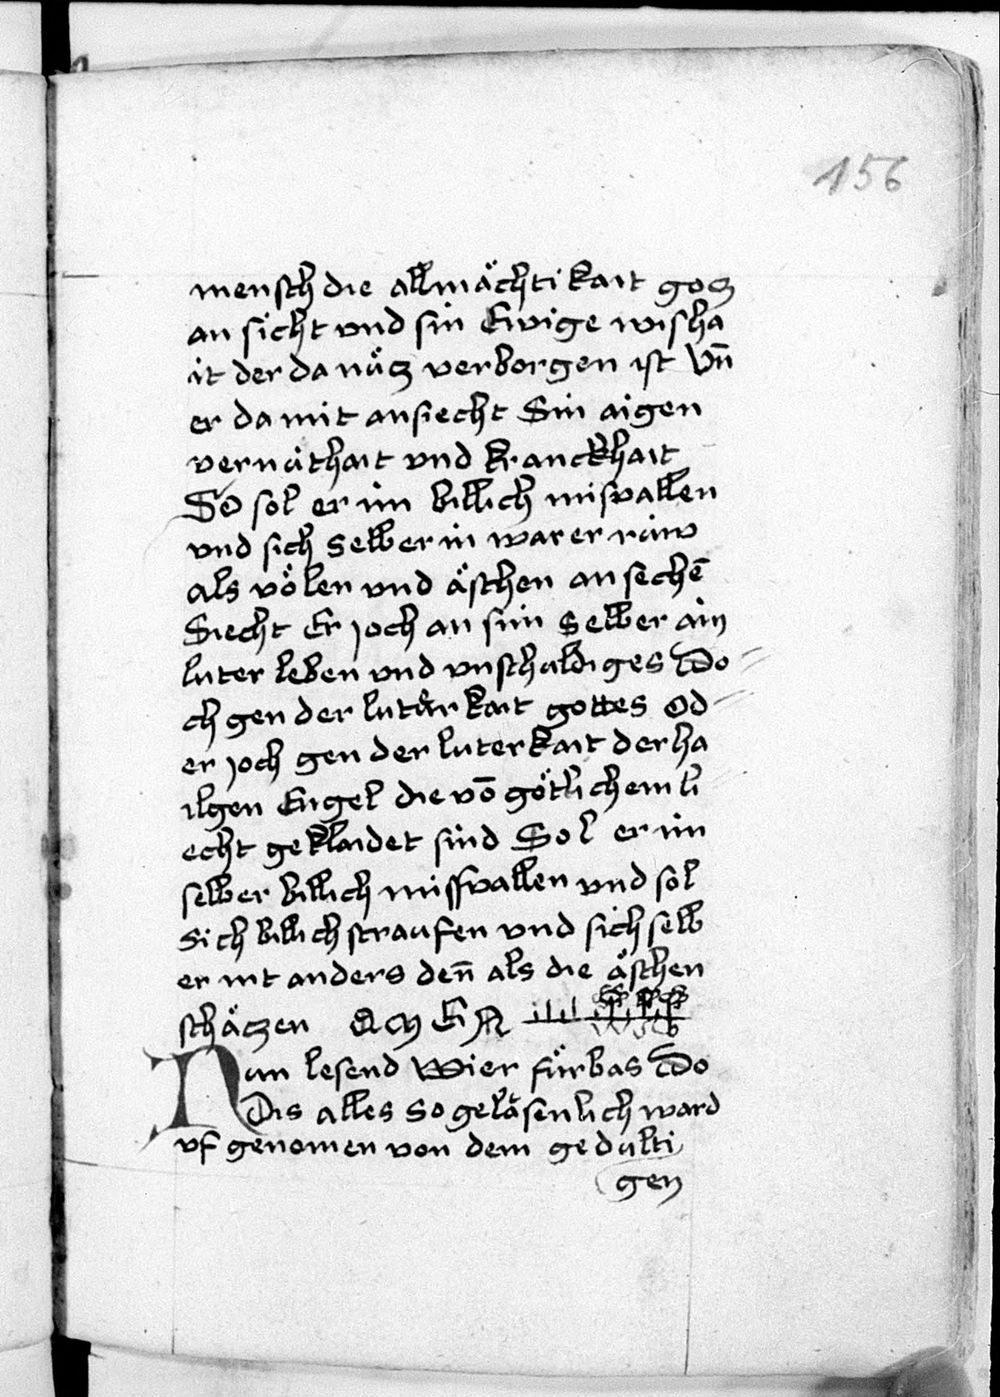 156
mensch die allmächtikait gocz
an sicht vnd sin Ewige wisha
it der da näcz verborgen ist Vn̄
er da mit ansiecht Sin aigen
vernüthait vnd kranckhait
So sol er im billich misvallen
vnd sich selber in warer rüw
als völen vnd äschen an sechē
Siecht Er joch an sim selber ain
luter leben vnd vnschuldiges Do
ch gen der luterkait gottes Od
er joch gen der luterkait der ha
ilgen Engel die vō götlichem li
echt geklaidet sind Sol er im
selber billich missvallen vnd sol
sich billich straufen vnd sich selb
er nit anders den̄ als die äschen
schäczen AMEN
Nun lesend Wier fürbas Do
Dis alles so geläsenlich ward
vf genomen von dem gedulti
gen